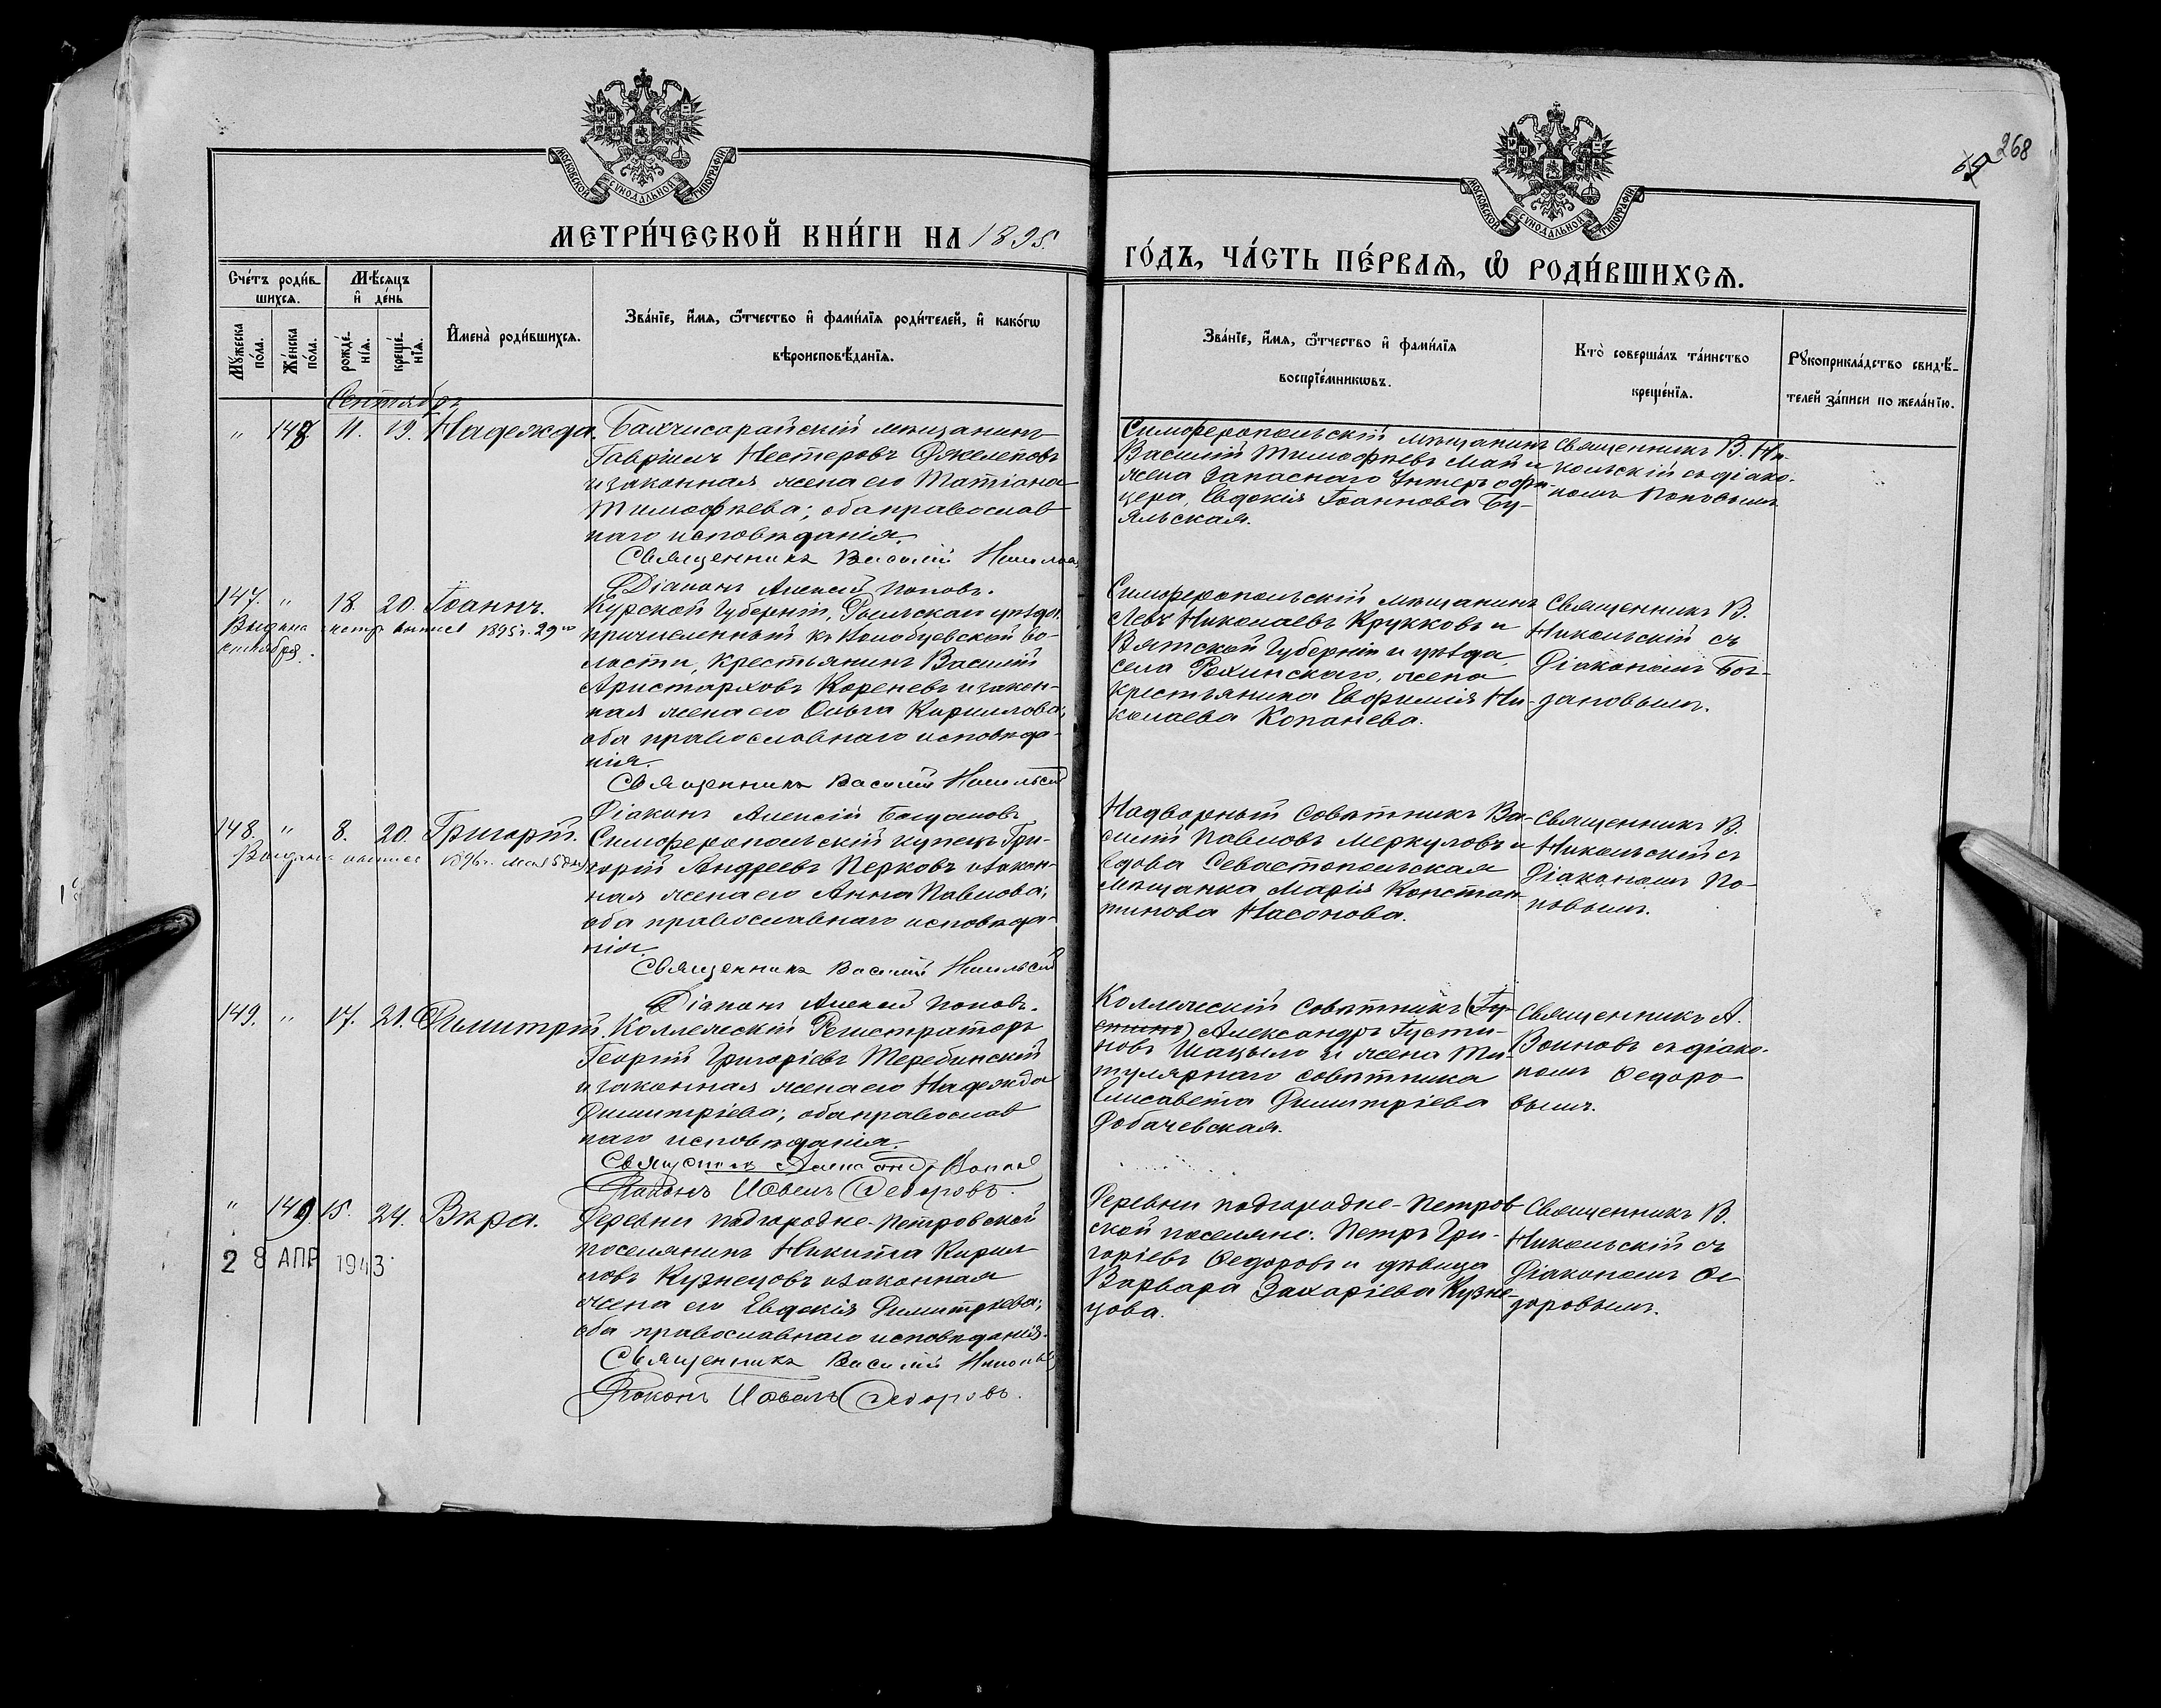 268
МОСКОВСКОЙ СУНОДАЛЬНОЙ ТИПОГРАФІИ
МОСКОВСКОЙ СУНОДАЛЬНОЙ ТИПОГРАФІИ
МЕТРИ́ЧЕСКОЙ КНИ́ГИ НА 1895
ГО́ДЪ, ЧА́СТЬ ПЕ́РВАЯ, Ѡ РОДИ́ВШИХСЯ.
Сче́тъ роди́в
шихся.
Мѣ́сяцъ
и де́нь
Мꙋ́жеска по́ла.
Же́нска по́ла.
рожде́нїя.
креще́нїя.
И҆мена̀ роди́вшихся.
Зва́нїе, и҆́мя, ѻ҆́тчество и҆ фами́лїя роди́телей, и҆ како́гѡ
вѣроисповѣ́данїя.
Зва́нїе, и҆́мя, ѻ҆́тчество и҆ фами́лїя
воспрїе́мникѡвъ.
Кто̀ соверша́лъ та́инство
креще́нїя.
Рꙋкоприкла́дство свидѣ́-
телей за́писи по жела́нїю.
Сентябрь
" 148. 11. 19. Надежда.
Бахчисарайскій мѣщанинъ
Гавріилъ Нестеровъ Джелеповъ
и законная жена его Татіана
Тимофѣева; оба православ
наго исповѣданія.
Священникъ Василій
Діаконъ Алексѣй Поповъ.
Симферопольскій мѣщанинъ
Василій Тимофѣевъ Май и
жена запаснаго Унтеръ офи-
цера Евдокія Іоаннова Бу-
яльская.
Священникъ В. Ни-
кольскій съ діако-
номъ Поповымъ
147. " 18. 20. Іоаннъ.
Выдана метр. выпись 1895 г. 29го
сентября.
Курской Губерніи, Рыльскаго уѣзда,
причисленный къ волости, Крестьянинъ Василій
Аристарховъ Кореневъ и закон-
ная жена его Ольга Кириллова;
оба православнаго исповѣда-
нія.
Священникъ Василій Никольскій
Діаконъ Алексій Богдановъ
Симферопольскій мѣщанинъ
Левъ Николаевъ Крукковъ и
Вятской Губерніи и уѣзда,
села жена
крестьянина Евфимія Ни-
колаева Копанева.
Священникъ В.
Никольскій съ
Діакономъ Бог-
дановымъ.
148. " 8. 20. Григорій.
Выдана выпись 1896 г. мая 5 дня
Симферопольскій купецъ Гри-
горій Андреевъ Перковъ и закон-
ная жена его Анна Павлова;
оба православнаго исповѣда-
нія.
Священникъ Василій Никольскій
Діаконъ Алексѣй Поповъ.
Надворный Совѣтникъ Ва-
силій Павловъ Меркуловъ и
вдова Севастопольская
мѣщанка Марія Констан-
тинова Насонова.
Священникъ В.
Никольскій съ
Діакономъ По-
повымъ.
149. " 17. 21. Димитрій.
Коллежскій Регистраторъ
Георгій Григоріевъ Теребинскій
и законная жена его Надежда
Димитріева; оба православ
наго исповѣданія.
Священникъ Александръ
Діаконъ Павелъ Федоровъ.
Коллежскій Совѣтникъ (Гу-
стинъ) Александръ Густи-
новъ Шацило и жена Ти-
тулярнаго совѣтника
Елисавета Димитріева
Добачевская.
Священникъ А.
Воиновъ съ діако-
номъ Федоро-
вымъ.
" 149 15. 24. Вѣра.
28 АПР 1943
Деревни Подгородне-Петровской
поселянинъ Никита Кирил-
ловъ Кузнецовъ и законная
жена его Евдокія Димитріева;
оба православнаго исповѣданія.
Священникъ Василій
Діаконъ Павелъ Федоровъ.
Деревни Подгородне-Петров
ской поселяне: Петръ Гри-
горіевъ Федоровъ и дѣвица
Варвара Захаріева Кузне-
цова.
Священникъ В.
Никольскій съ
Діакономъ Фе
доровымъ.